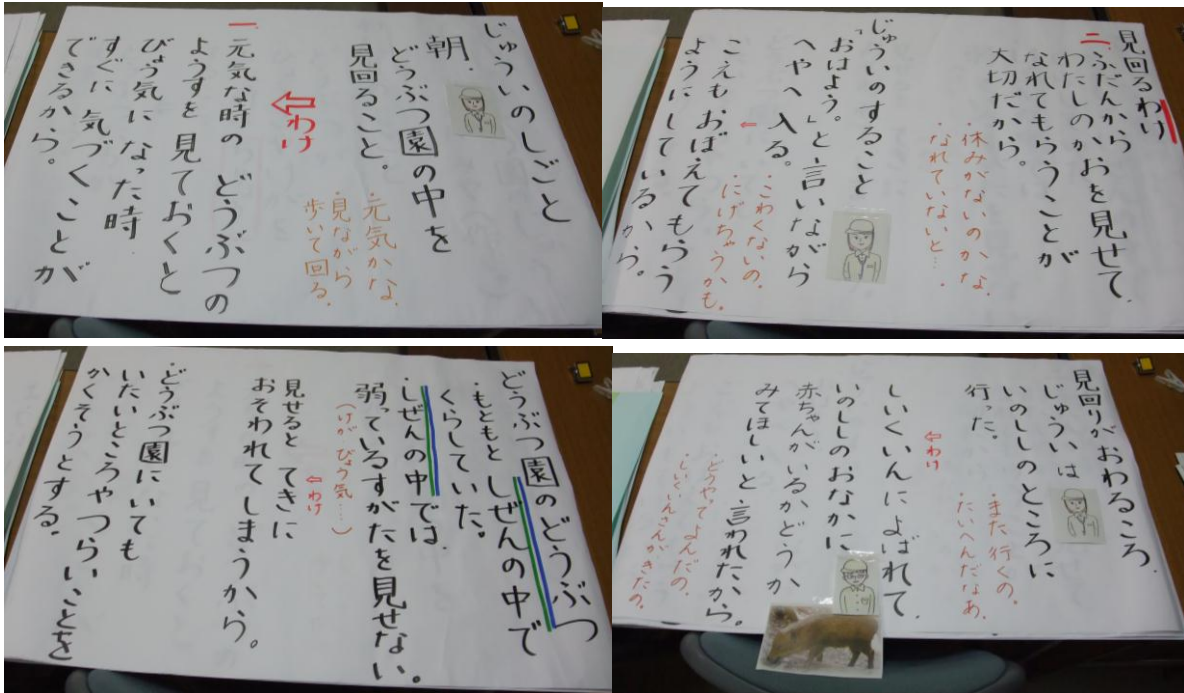 じゅういのしごと
朝、
どうぶつ園の中を
見回ること。
・元気かな。
・見ながら
歩いて回る。
わけ
一 元気な時の どうぶつの
ようすを 見ておくと
びょう気に なった時
すぐに 気づくことが
できるから。
見回るわけ
二 ふだんから
わたしのかおを見せて、
なれてもらうことが
大切だから。
・休みがないのかな。
・なれていないと…。
じゅういのすること
「おはよう。」と言いながら
へやへ入る。
・こわくないの。
・にげちゃうかも。
こえも おぼえてもらう
ようにしているから。
どうぶつ園のどうぶつ
・もともと しぜんの中で
くらしていた。
・しぜんの中では
弱っているすがたを見せない。
(けが びょう気……)
わけ
見せると てきに
おそわれて しまうから。
・どうぶつ園にいても
いたいところや つらいことを
かくそうとする。
見回りがおわるころ、
じゅういは
いのししのところに
行った。
・また行くの。
・たいへんだなあ。
わけ
しいくいんによばれて、
いのししのおなかに
赤ちゃんがいるかどうか
みてほしいと言われたから。
・どうやってよんだの。
・しいくいんさんがきたの。